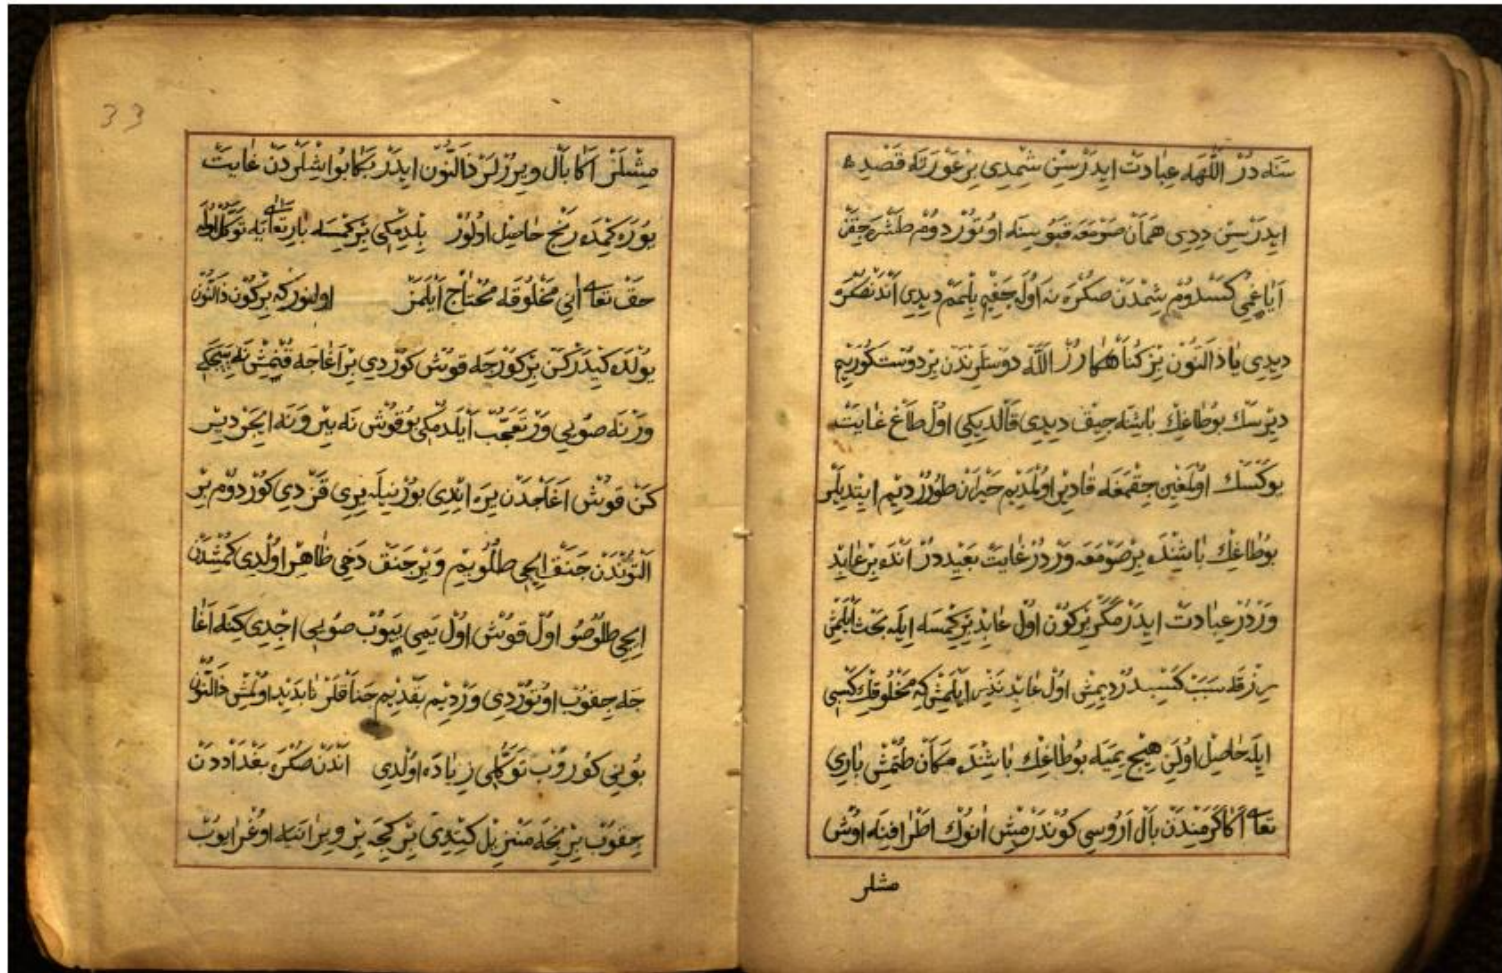 سنه در اللهه عبادت ايدرسن شمدى بر عورته قصد
ايدرسن ددى همان صومعه قپوسنه اوتوردوم طشره چقن
اياغمى كسدوم شمدن صكره نه اوله جغيم بلممم ديدى اندنصكره
ديدى يا ذالنون بز كناهكارز الله دوستلرندن بر دوست كوريم
ديرسك بو طاغك باشنه چيق ديدى قالديكى اول طاغ غايت
يوكسك اولغين چقمغه قادر اولمديم حيران طورردیم ايتديلر
بو طاغك باشنده بر صومعه وردر غايت بعيددر انده بر عابد
وردر عبادت ايدر مكر بر كون اول عابد بر كمسه ايله بحث ايلمش
رزقه سبب كسبدر ديمش اول عابد نذر ايلمش كه مخلوقك كسبى
ايله حاصل اولن هيچ يميه بو طاغك باشنده مكان طتمش بارى
تعالى اكا كرمندن بال اروسى كوندرمش انوك اطرافينه اوش
مشلر
33
مشلر اكا بال ويررلر ذالنون ايدر بكا بو اشلردن غايت
يوره كمده رنج حاصل اولور بلدمكى بر كمسه بارى تعالى يه توكل اوله
حق تعالى انى مخلوقه محتاج ايلمز اولنور كه بر كون ذالنون
يولده كيدركن بر كورجه قوش كوردى بر اغاجه قنمش نه ييجكى
ور نه صويى ور تعجب ايلدمكى بو قوش نه يير و نه ايچر دير
كن قوش اغاجدن يره اندى بورنيله يرى قزدى كوردوم بر
التوندن چنق ايچى طلو يم و بر چنق دخى ظاهر اولدى كمشدن
ايچى طلو صو اول قوش اول يمى ييوب صويى اچدى كنه اغا
جه چقوب اوتوردى وردیم بقدیم چناقلر نابديد اولمش ذالنون
بونى كوروب توكلى زياده اولدى اندن صكره بغداددن
چقوب بر نيجه منزيل كيتدى بر كيجه بر ويرانيه اوغرايوب